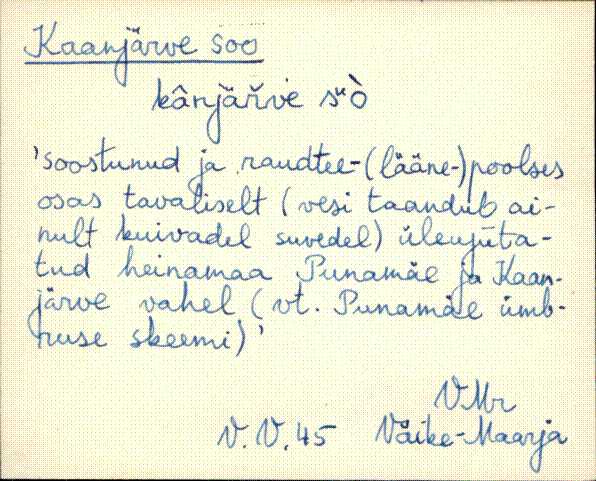 Kaanjärve soo
kânjäŕve sᵘò
'soostunud ja raudtee-(lääne-)poolses
osas tavaliselt (vesi taandub ai-
nult kuivadel suvedel) üleujuta-
tud heinamaa Punamäe ja Kaan-
järve vahel (vt. Punamäe ümb-
ruse skeemi)'
VMr
V.V.45 Väike-Maarja